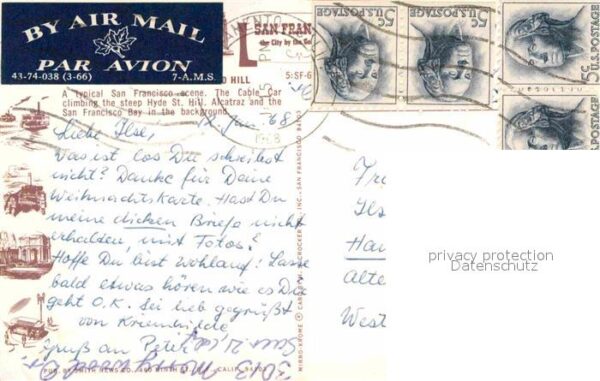 BY AIR MAIL
PAR AVION
43-74-038 (3-66) 7-A.M.S.
SAN FRAN
the City by the Go
D HILL 5:SF-6
A typical San Francisco scene. The Cable Car
climbing the steep Hyde St. Hill. Alcatraz and the
San Francisco Bay in the background.
5c U.S. POSTAGE
5c U.S. POSTAGE
5c U.S. POSTAGE
U.S. POSTAGE
1968
Liebe Ilse, 68
Was ist los Du schreibst
nicht? Danke für Deine
Weihnachtskarte. Hast Du
meine dicken Briefe nicht
erhalten, mit Fotos?
Hoffe Du bist wohlauf! Lasse
bald etwas hören wie es Dir
geht O.K. Sei lieb gegrüßt
von Kriemhilde
Gruß an Peter
3013
Fr
Ils
Han
Alte
West
MIRRO-KROME ® CARD BY H. S. CROCKER CO., INC., SAN FRANCISCO
PUB. BY SMITH NEWS CO., CALIF.
privacy protection
Datenschutz